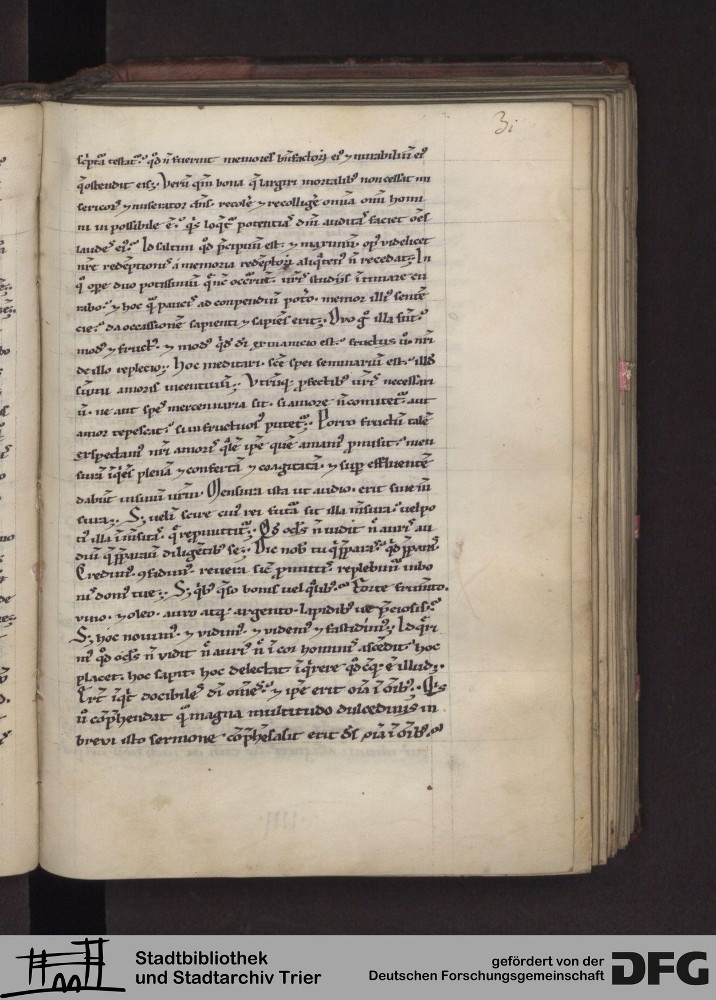 3i
sc̄ptā testat᷒. qd̄ n̄ fuerint memores bn̄factor̨ ei᷒ ⁊ mirabiliū ei᷒
q̄ ostendit eis. Verū qm̄ bona q̄ largiri mortalib᷒ non cessat mi
sericors ⁊ miserator dn̄s. recolē ⁊ recolligē omnia omī homi
ni in possibile ē. q̄s loq̄t᷒ potentias dn̄i auditas faciet om̄s
laudes ei᷒. Id saltim qd̄ p̄cipuū est. ⁊ maximū. op᷒ videlicet
nr̄e redēptionis a memoria redēptor̨ aliq̄ten᷒ n̄ recedat. In
q᷒ ope duo potissimū q̄ nc̄ occērūt. vr̄is studiis ītimare cu
rabo. ⁊ hoc q̄ pauci᷒ ad conpendiū poto. memor illi᷒ sentē
cie. da occassionē sapienti ⁊ sapiēs erit. Duo g᷒ illa sūt.
mod᷒ ⁊ fruct᷒. ⁊ mod᷒ qd̄ di exinanicio est. fructus ū nr̄i
de illo replecio. hoc meditari. sc̄e spei seminariū est. illd̄
sūmi amoris incentiuū. Vtrūq; p̄fectib᷒ vr̄is necessari
ū. ne aut spes mercennaria sit. si amore n̄ comitet᷒. aut
amor tepescat. si infructuos᷒ putet᷒. Porro fructū talē
exspectam᷒ nr̄i amoris q̄lē ip̄e quē amam᷒ promisit. men
surā īq̄ēs plenā ⁊ confertā ⁊ coagitatā. ⁊ sup̄ effluentē
dabūt in sinū vr̄m. Mensura ista ut audio. erit sine m̄
sura. S; velī scire cui᷒ rei futā sit illa m̄sura. vel po
ti᷒ illa īmēsitas. q̄ repromittit᷒. Ocl̄s n̄ vidit n̄ auris au
diuit q̄ p̄parasti diligētib᷒ te. Dic nob̄ tu q̄ p̄paras. qd̄ p̄paras.
Credim᷒. ꝯfidim᷒. reuera sic̄ promittis. replebimur in bo
nis dom᷒ tue. S; q̄b᷒ q̄so bonis uel q̄lib᷒. Forte frumto.
vino. ⁊ oleo. auro atq; argento. lapidib᷒ ve p̄ciosis.
S; hoc nouim᷒. ⁊ vidim᷒. ⁊ videm᷒ ⁊ fastidim᷒. Id q̄ri
m᷒ qd̄ ocl̄s n̄ vidit n̄ auris n̄ ī cor hominis ascēdit. hoc
placet. hoc sapit. hoc delectat īq̄rere qd̄cq̄ ē illud.
Erūt īq̄t docibiles di om̄es. ⁊ ip̄e erit oīa ī oīb᷒. Qs
ū cōp̄hendat q̄ magna multitudo dulcedinis in
breui isto sermone cōp̄hēsa sit erit ds̄ oīa ī oīb᷒.
Stadtbibliothek
und Stadtarchiv Trier
gefördert von der
Deutschen Forschungsgemeinschaft
DFG